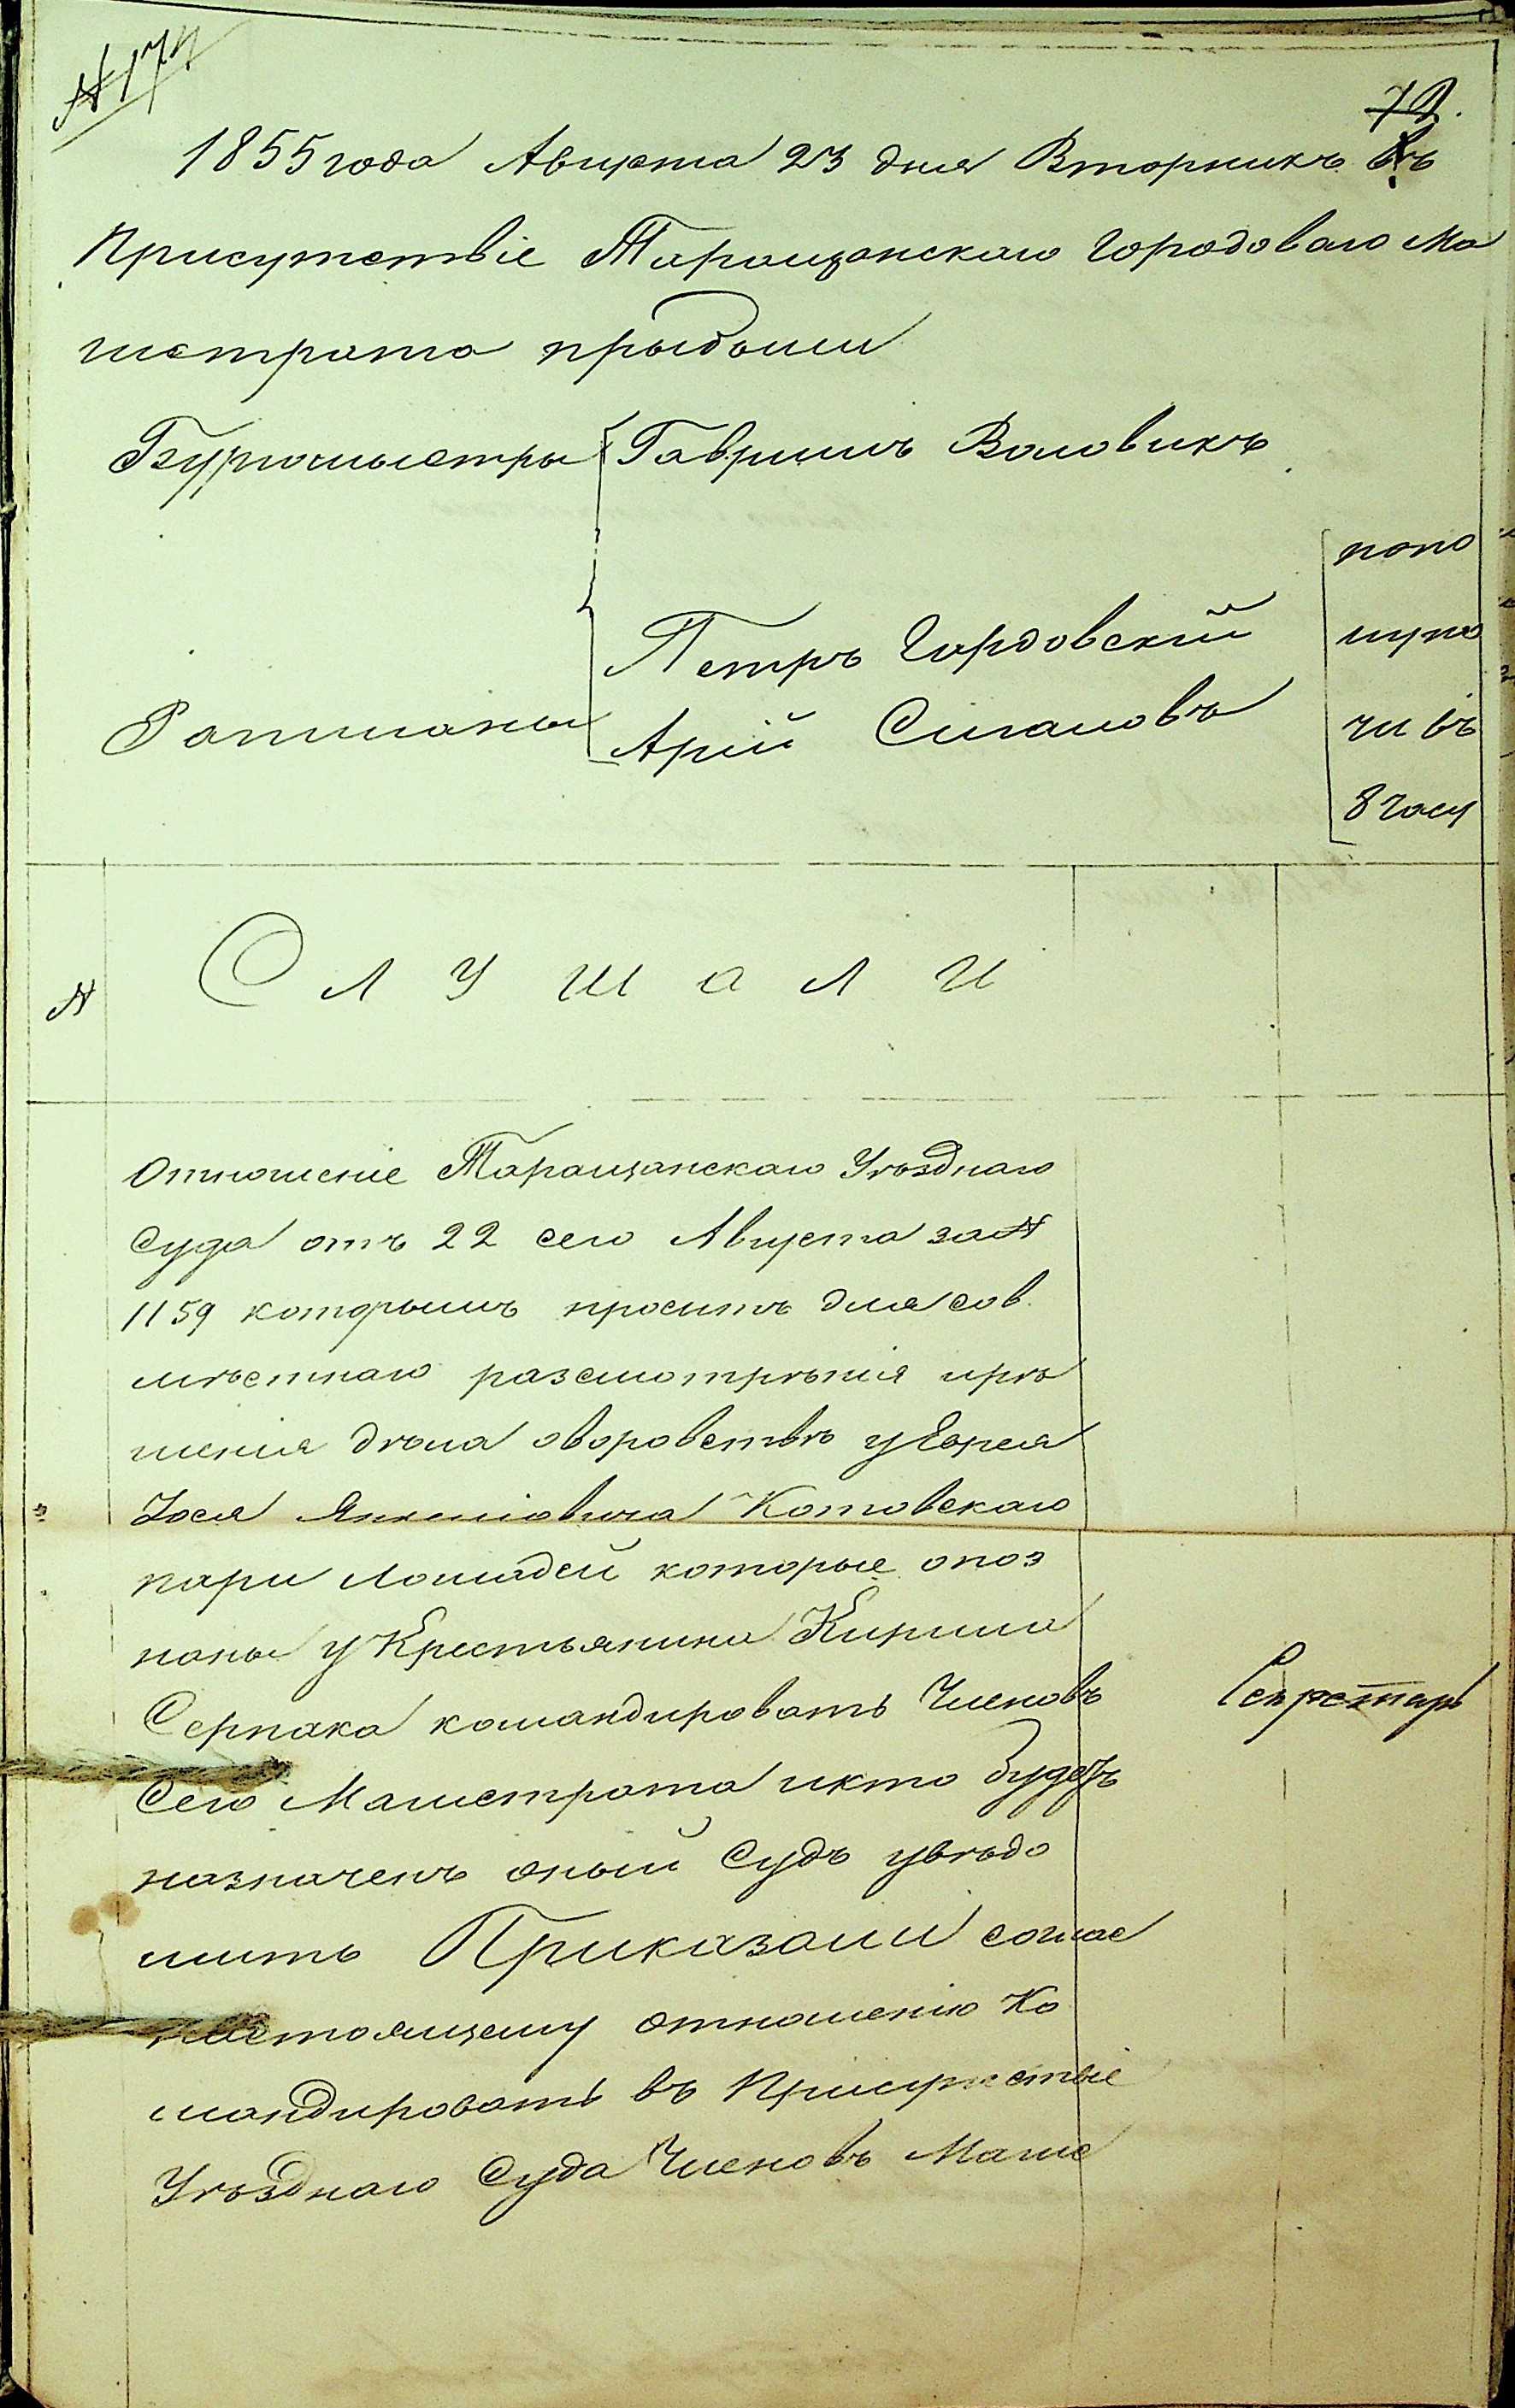 № 174
72.
1855 года Августа 23 дня Вторникъ въ
Присутствіе Таращанскаго Городоваго Ма
гистрата прыбыли
Бургомыстры Гаврыилъ Воловикъ
Петръ Гордовскій
Ратманы Арій Сигаловъ
попо
лупо
чи въ
8 часу
№ Слушали
Отношеніе Таращанскаго Уѣзднаго
Суда отъ 22 сего Августа за №
1159 которымъ проситъ для сов
мѣстнаго разсмотрѣнія ирѣ
шенія дѣла оворовствѣ у Еврея
Іося Янкеліовича Котовскаго
пари лошадей которые опоз
наны у Крестьянина Кирила
Серпака командировать Членовъ
Сего Магистрата икто будетъ
назначенъ оный Судъ увѣдо
мить Приказали соглас
настоящему отношенію Ко
мандировать въ Присутствіе
Уѣзднаго Суда Членовъ Магис
Секретарь